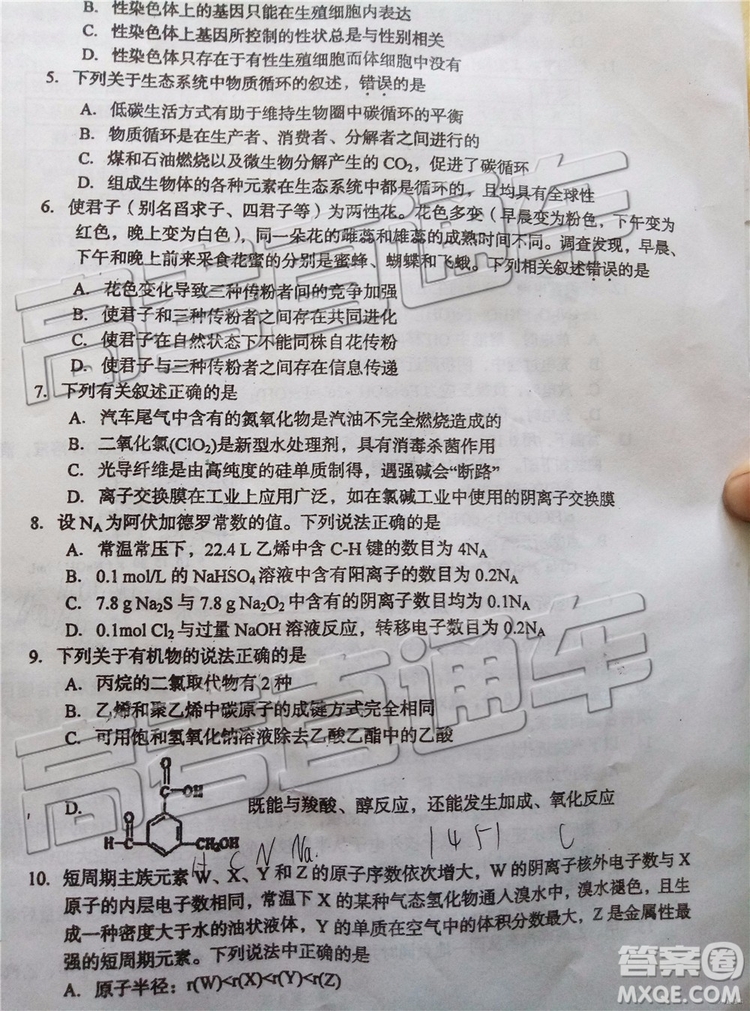 B. 性染色体上的基因只能在生殖细胞内表达
C. 性染色体上基因所控制的性状总是与性别相关
D. 性染色体只存在于有性生殖细胞而体细胞中没有
5. 下列关于生态系统中物质循环的叙述，错误的是
A. 低碳生活方式有助于维持生物圈中碳循环的平衡
B. 物质循环是在生产者、消费者、分解者之间进行的
C. 煤和石油燃烧以及微生物分解产生的 CO₂，促进了碳循环
D. 组成生物体的各种元素在生态系统中都是循环的，且均具有全球性
6. 使君子（别名舀求子、四君子等）为两性花。花色多变（早晨变为粉色，下午变为
红色，晚上变为白色），同一朵花的雌蕊和雄蕊的成熟时间不同。调查发现，早晨、
下午和晚上前来采食花蜜的分别是蜜蜂、蝴蝶和飞蛾。下列相关叙述错误的是
A. 花色变化导致三种传粉者间的竞争加强
B. 使君子和三种传粉者之间存在共同进化
C. 使君子在自然状态下不能同株自花传粉
D. 使君子与三种传粉者之间存在信息传递
7. 下列有关叙述正确的是
A. 汽车尾气中含有的氮氧化物是汽油不完全燃烧造成的
B. 二氧化氯(ClO₂)是新型水处理剂，具有消毒杀菌作用
C. 光导纤维是由高纯度的硅单质制得，遇强碱会“断路”
D. 离子交换膜在工业上应用广泛，如在氯碱工业中使用的阴离子交换膜
8. 设 Nᴀ 为阿伏加德罗常数的值。下列说法正确的是
A. 常温常压下，22.4 L 乙烯中含 C-H 键的数目为 4Nᴀ
B. 0.1 mol/L 的 NaHSO₄ 溶液中含有阳离子的数目为 0.2Nᴀ
C. 7.8 g Na₂S 与 7.8 g Na₂O₂ 中含有的阴离子数目均为 0.1Nᴀ
D. 0.1mol Cl₂ 与过量 NaOH 溶液反应，转移电子数目为 0.2Nᴀ
9. 下列关于有机物的说法正确的是
A. 丙烷的二氯取代物有 2 种
B. 乙烯和聚乙烯中碳原子的成键方式完全相同
C. 可用饱和氢氧化钠溶液除去乙酸乙酯中的乙酸
O
C-OH
D. 既能与羧酸、醇反应，还能发生加成、氧化反应
O
H-C CH₂OH
1451 C
H C N Na
10. 短周期主族元素 W、X、Y 和 Z 的原子序数依次增大，W 的阴离子核外电子数与 X
原子的内层电子数相同，常温下 X 的某种气态氢化物通入溴水中，溴水褪色，且生
成一种密度大于水的油状液体，Y 的单质在空气中的体积分数最大，Z 是金属性最
强的短周期元素。下列说法中正确的是
A. 原子半径：r(W)<r(X)<r(Y)<r(Z)
高考直通车
高考直通车
答案圈
MXQE.COM